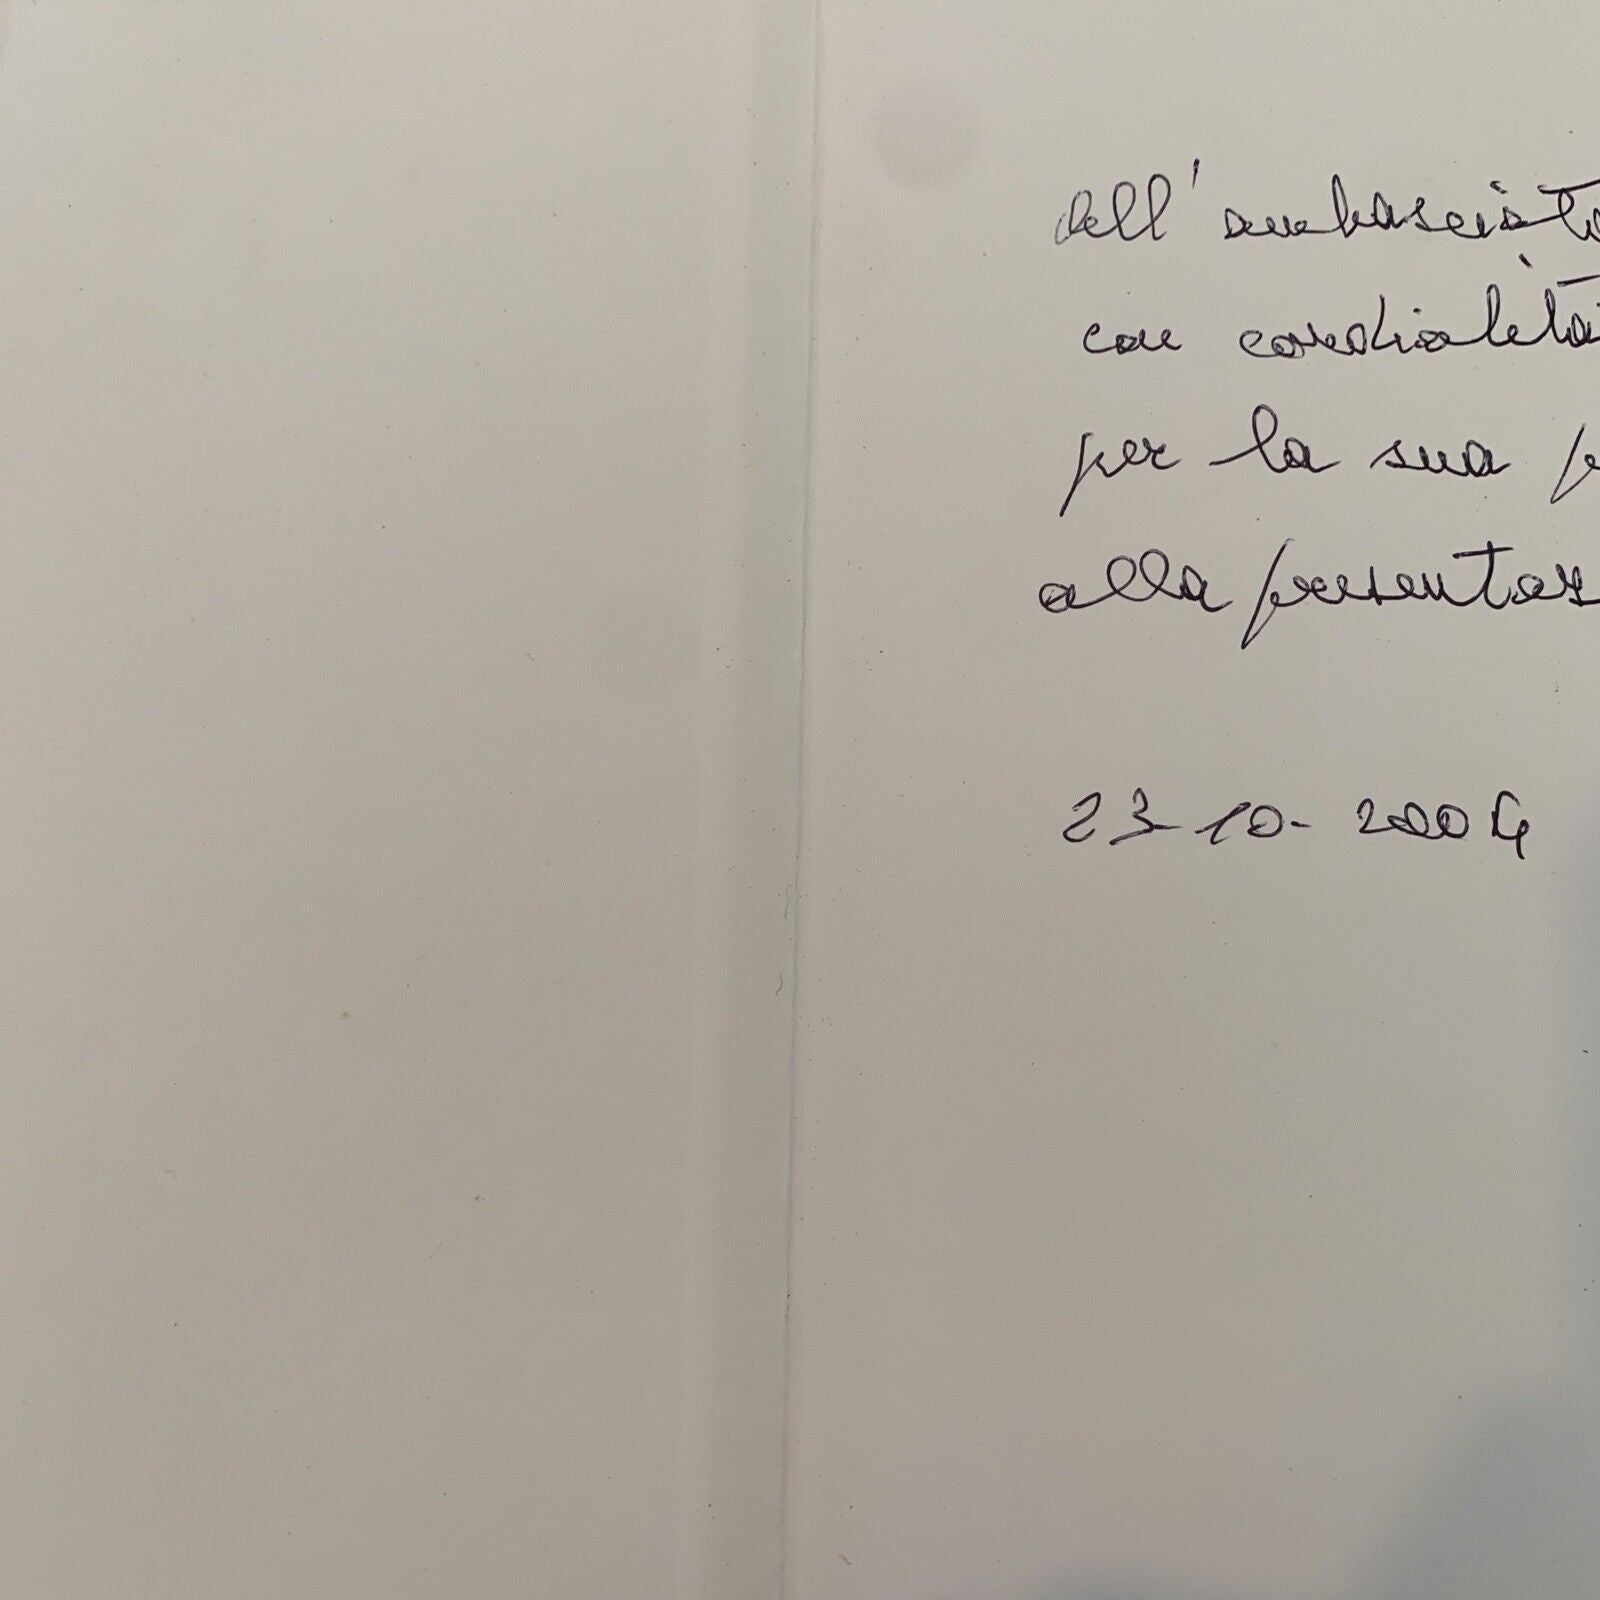 all'ambasciato
con cordialità
per la sua p
alla presentaz
23-10-2004